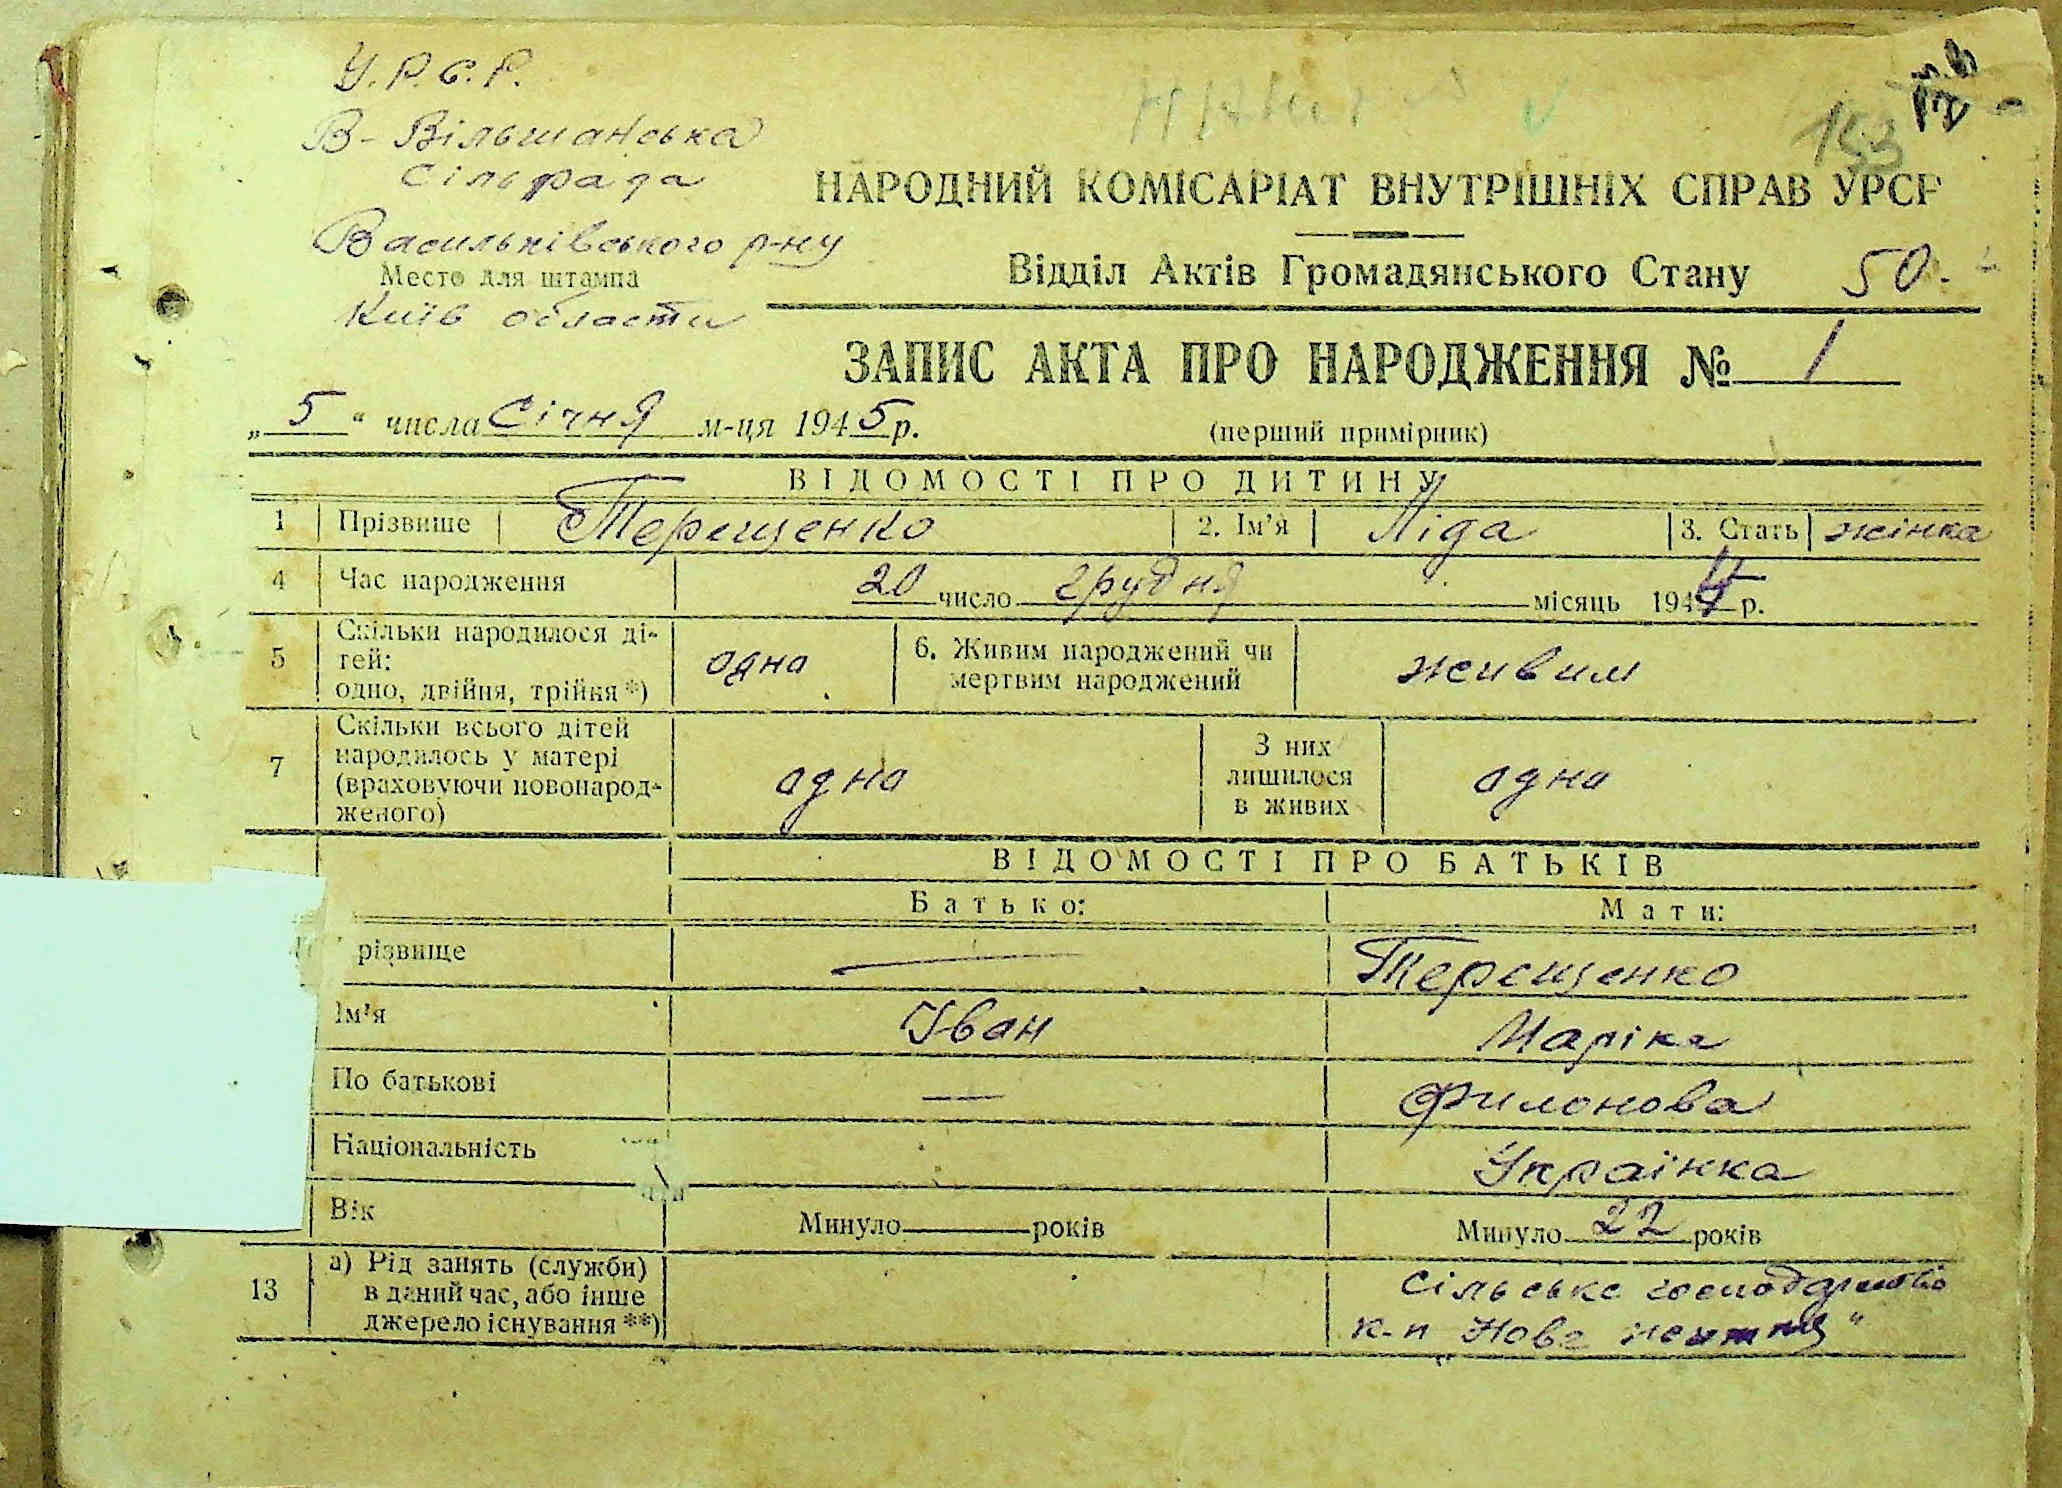 У.Р.С.Р.
В-Вільшанська
сільрада
Васильківського р-ну
Место для штампа
Київ области
153
НАРОДНИЙ КОМІСАРІАТ ВНУТРІШНІХ СПРАВ УРСР
Відділ Актів Громадянського Стану 50.
ЗАПИС АКТА ПРО НАРОДЖЕННЯ № 1
„ 5 “ числа Січня м-ця 1945 р.
(перший примірник)
ВІДОМОСТІ ПРО ДИТИНУ
1 Прізвише Терещенко 2. Ім'я Ліда 3. Стать жінка
4 Час народження 20 число грудня місяць 1944 р.
5 Скільки народилося ді-
тей:
одно, двійня, трійня *) одна
6. Живим народжений чи
мертвим народжений живим
7 Скільки всього дітей
народилось у матері
(враховуючи новонарод-
женого) одна
З них
лишилося
в живих одна
ВІДОМОСТІ ПРО БАТЬКІВ
Батько: Мати:
різвище — Терещенко
Ім'я Іван Маріка
По батькові — Филонова
Національність Украінка
Вік Минуло — років Минуло 22 років
13 а) Рід занять (служби)
в даний час, або інше
джерело існування **)
сільське господарство
к-п „Нове життя"